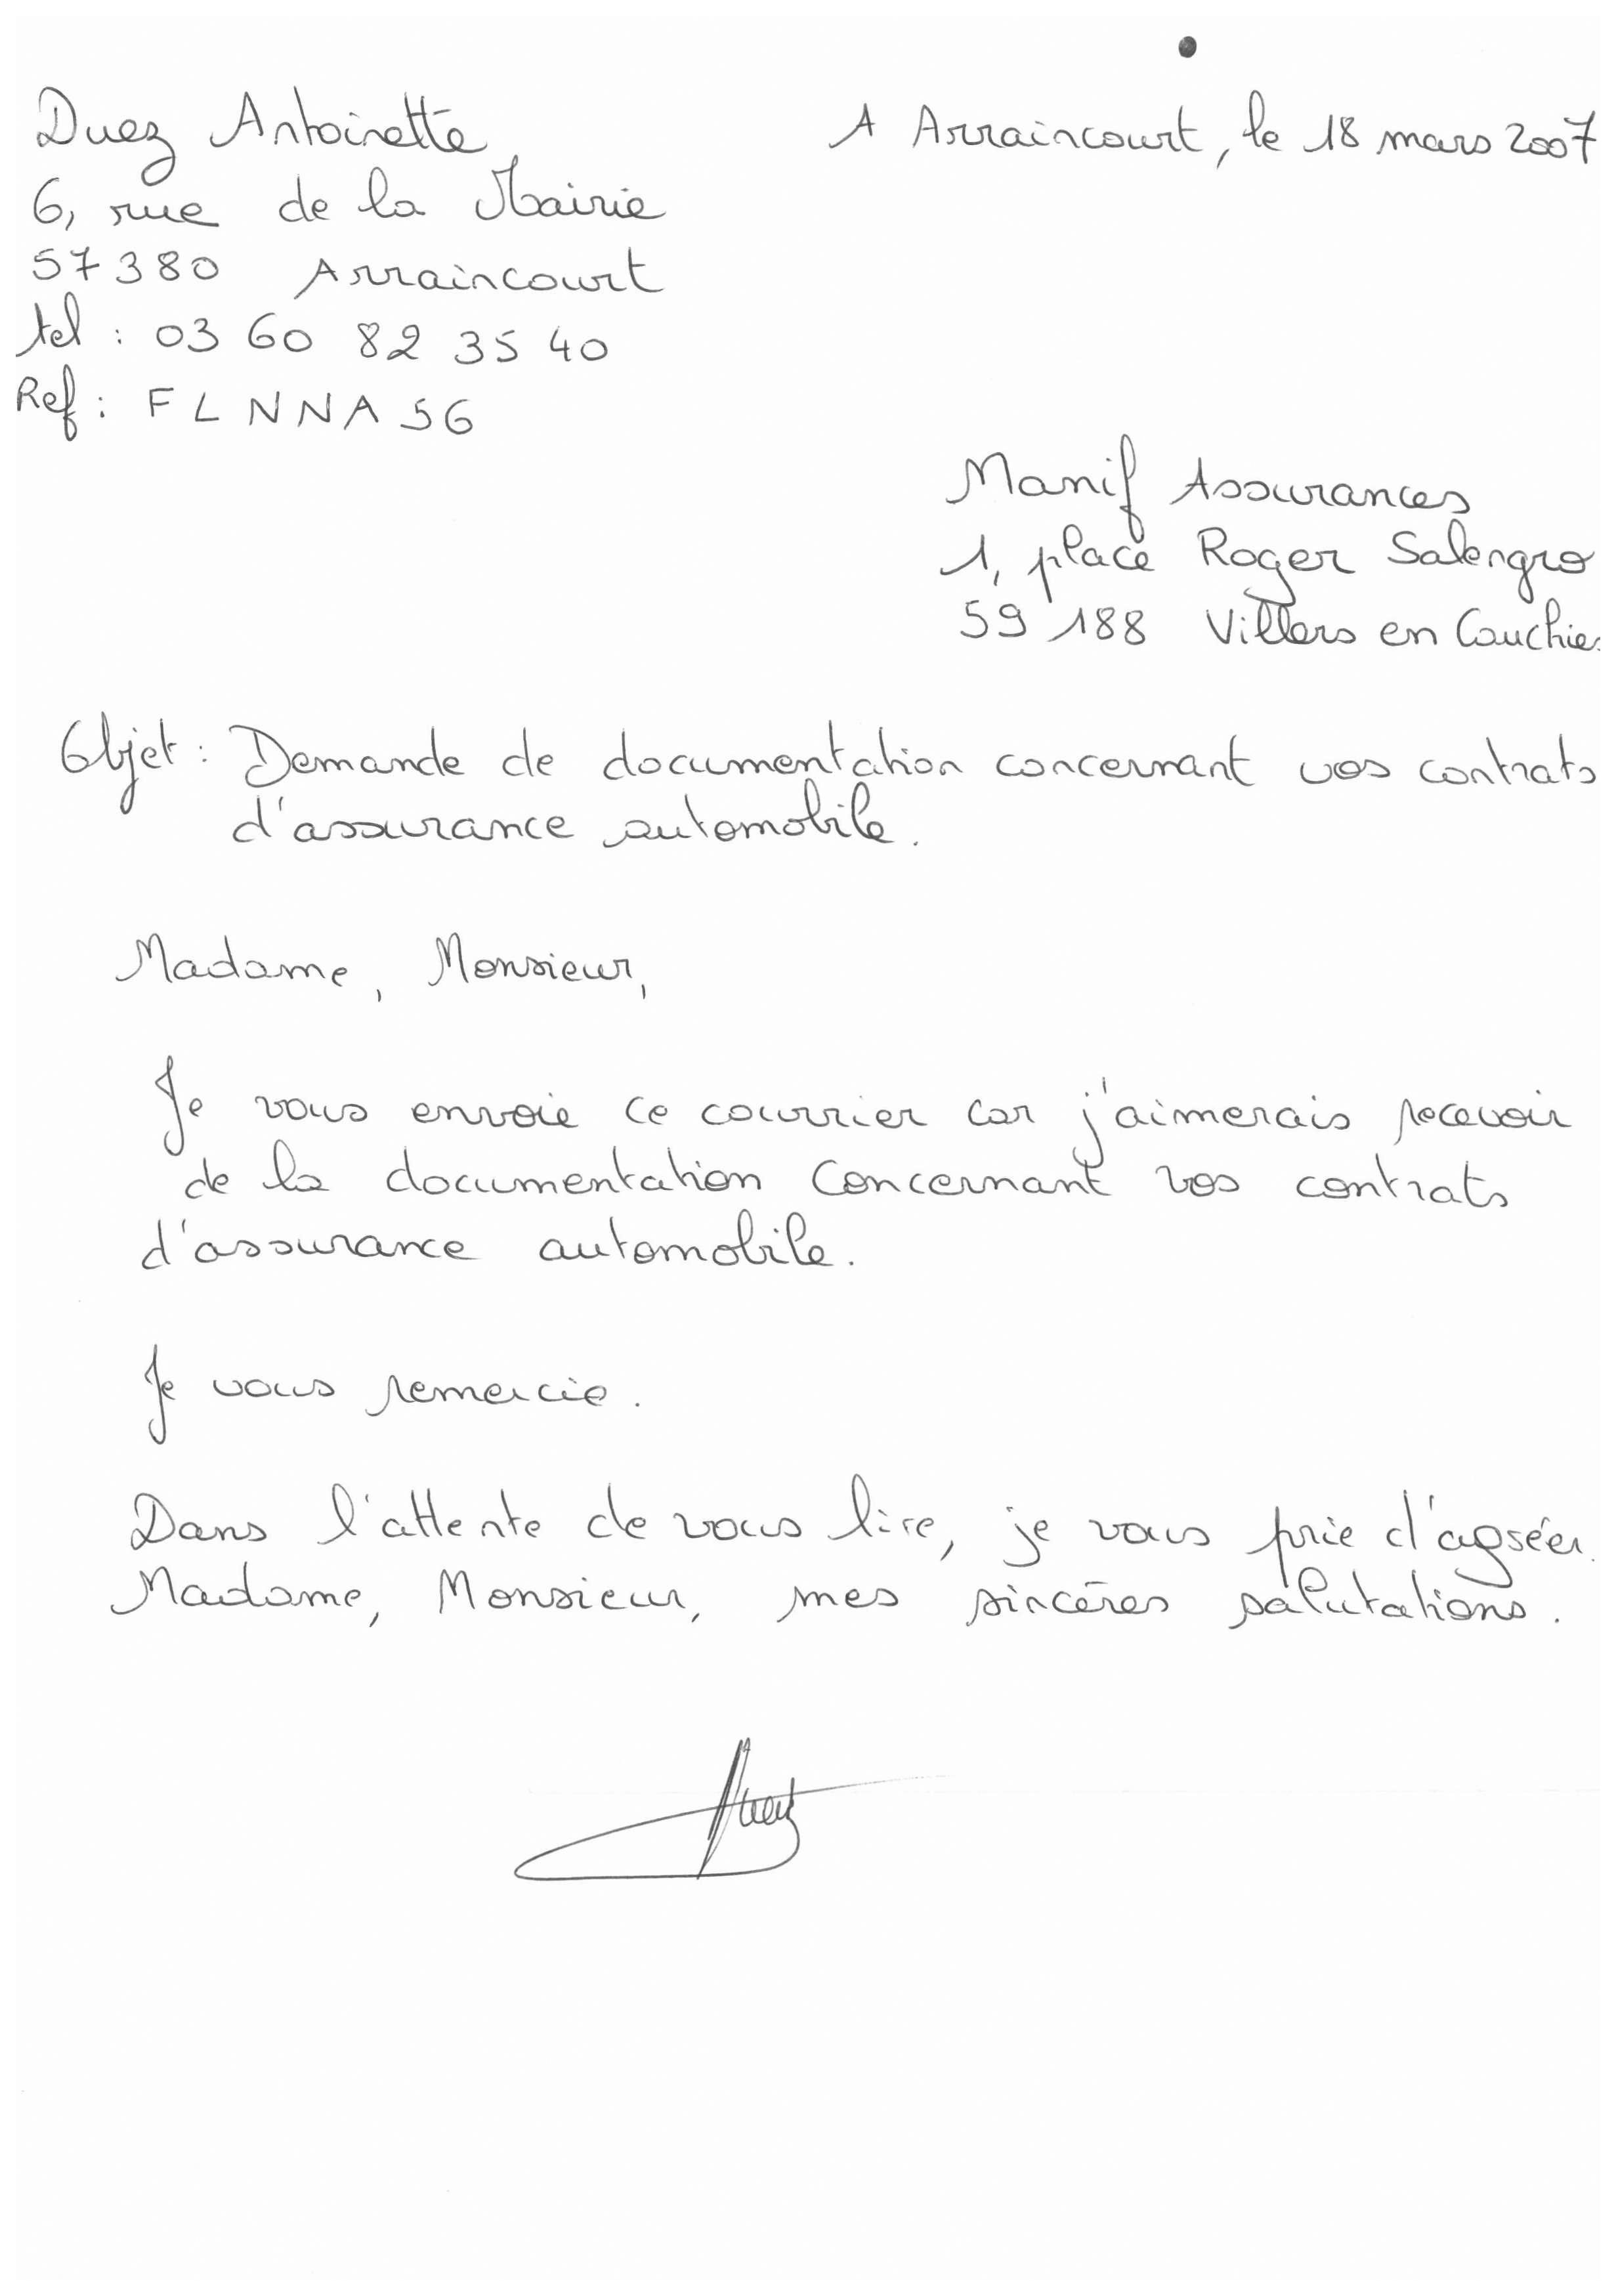 Duez Antoinette
A Arraincourt, le 18 mars 2007
6, rue de la Mairie
57380 Arraincourt
tel : 03 60 82 35 40
Ref : FLNNA56
Manif Assurances
1, place Roger Salengro
59 188 Villers en Cauchies
Objet : Demande de documentation concernant vos contrats
d'assurance automobile.
Madame, Monsieur,
Je vous envoie ce courrier car j'aimerais recevoir
de la documentation concernant vos contrats
d'assurance automobile.
Je vous remercie.
Dans l'attente de vous lire, je vous prie d'agréer
Madame, Monsieur, mes sincères salutations.
Duez